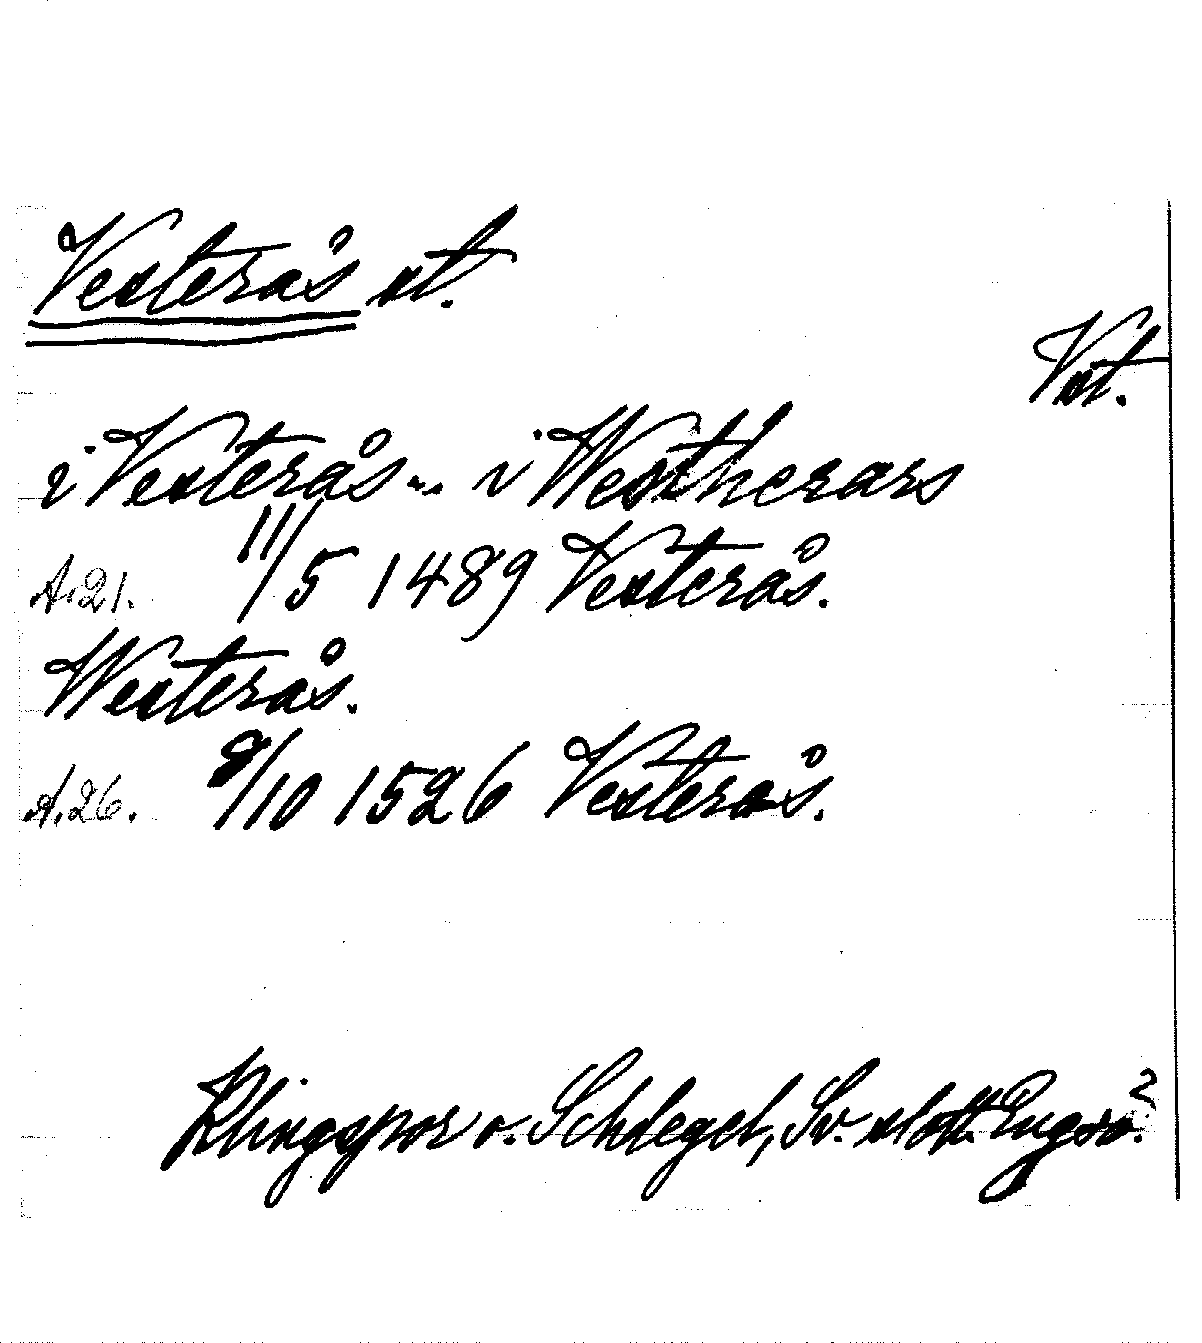 Vesterås st.
Vst.
i Vesterås... i Westherars
A.21. 11/5 1489 Vesterås.
Westerås.
A.26. 9/10 1526 Vesterås.
Klingspor o. Schlegel, Sv. slott. Engsö.